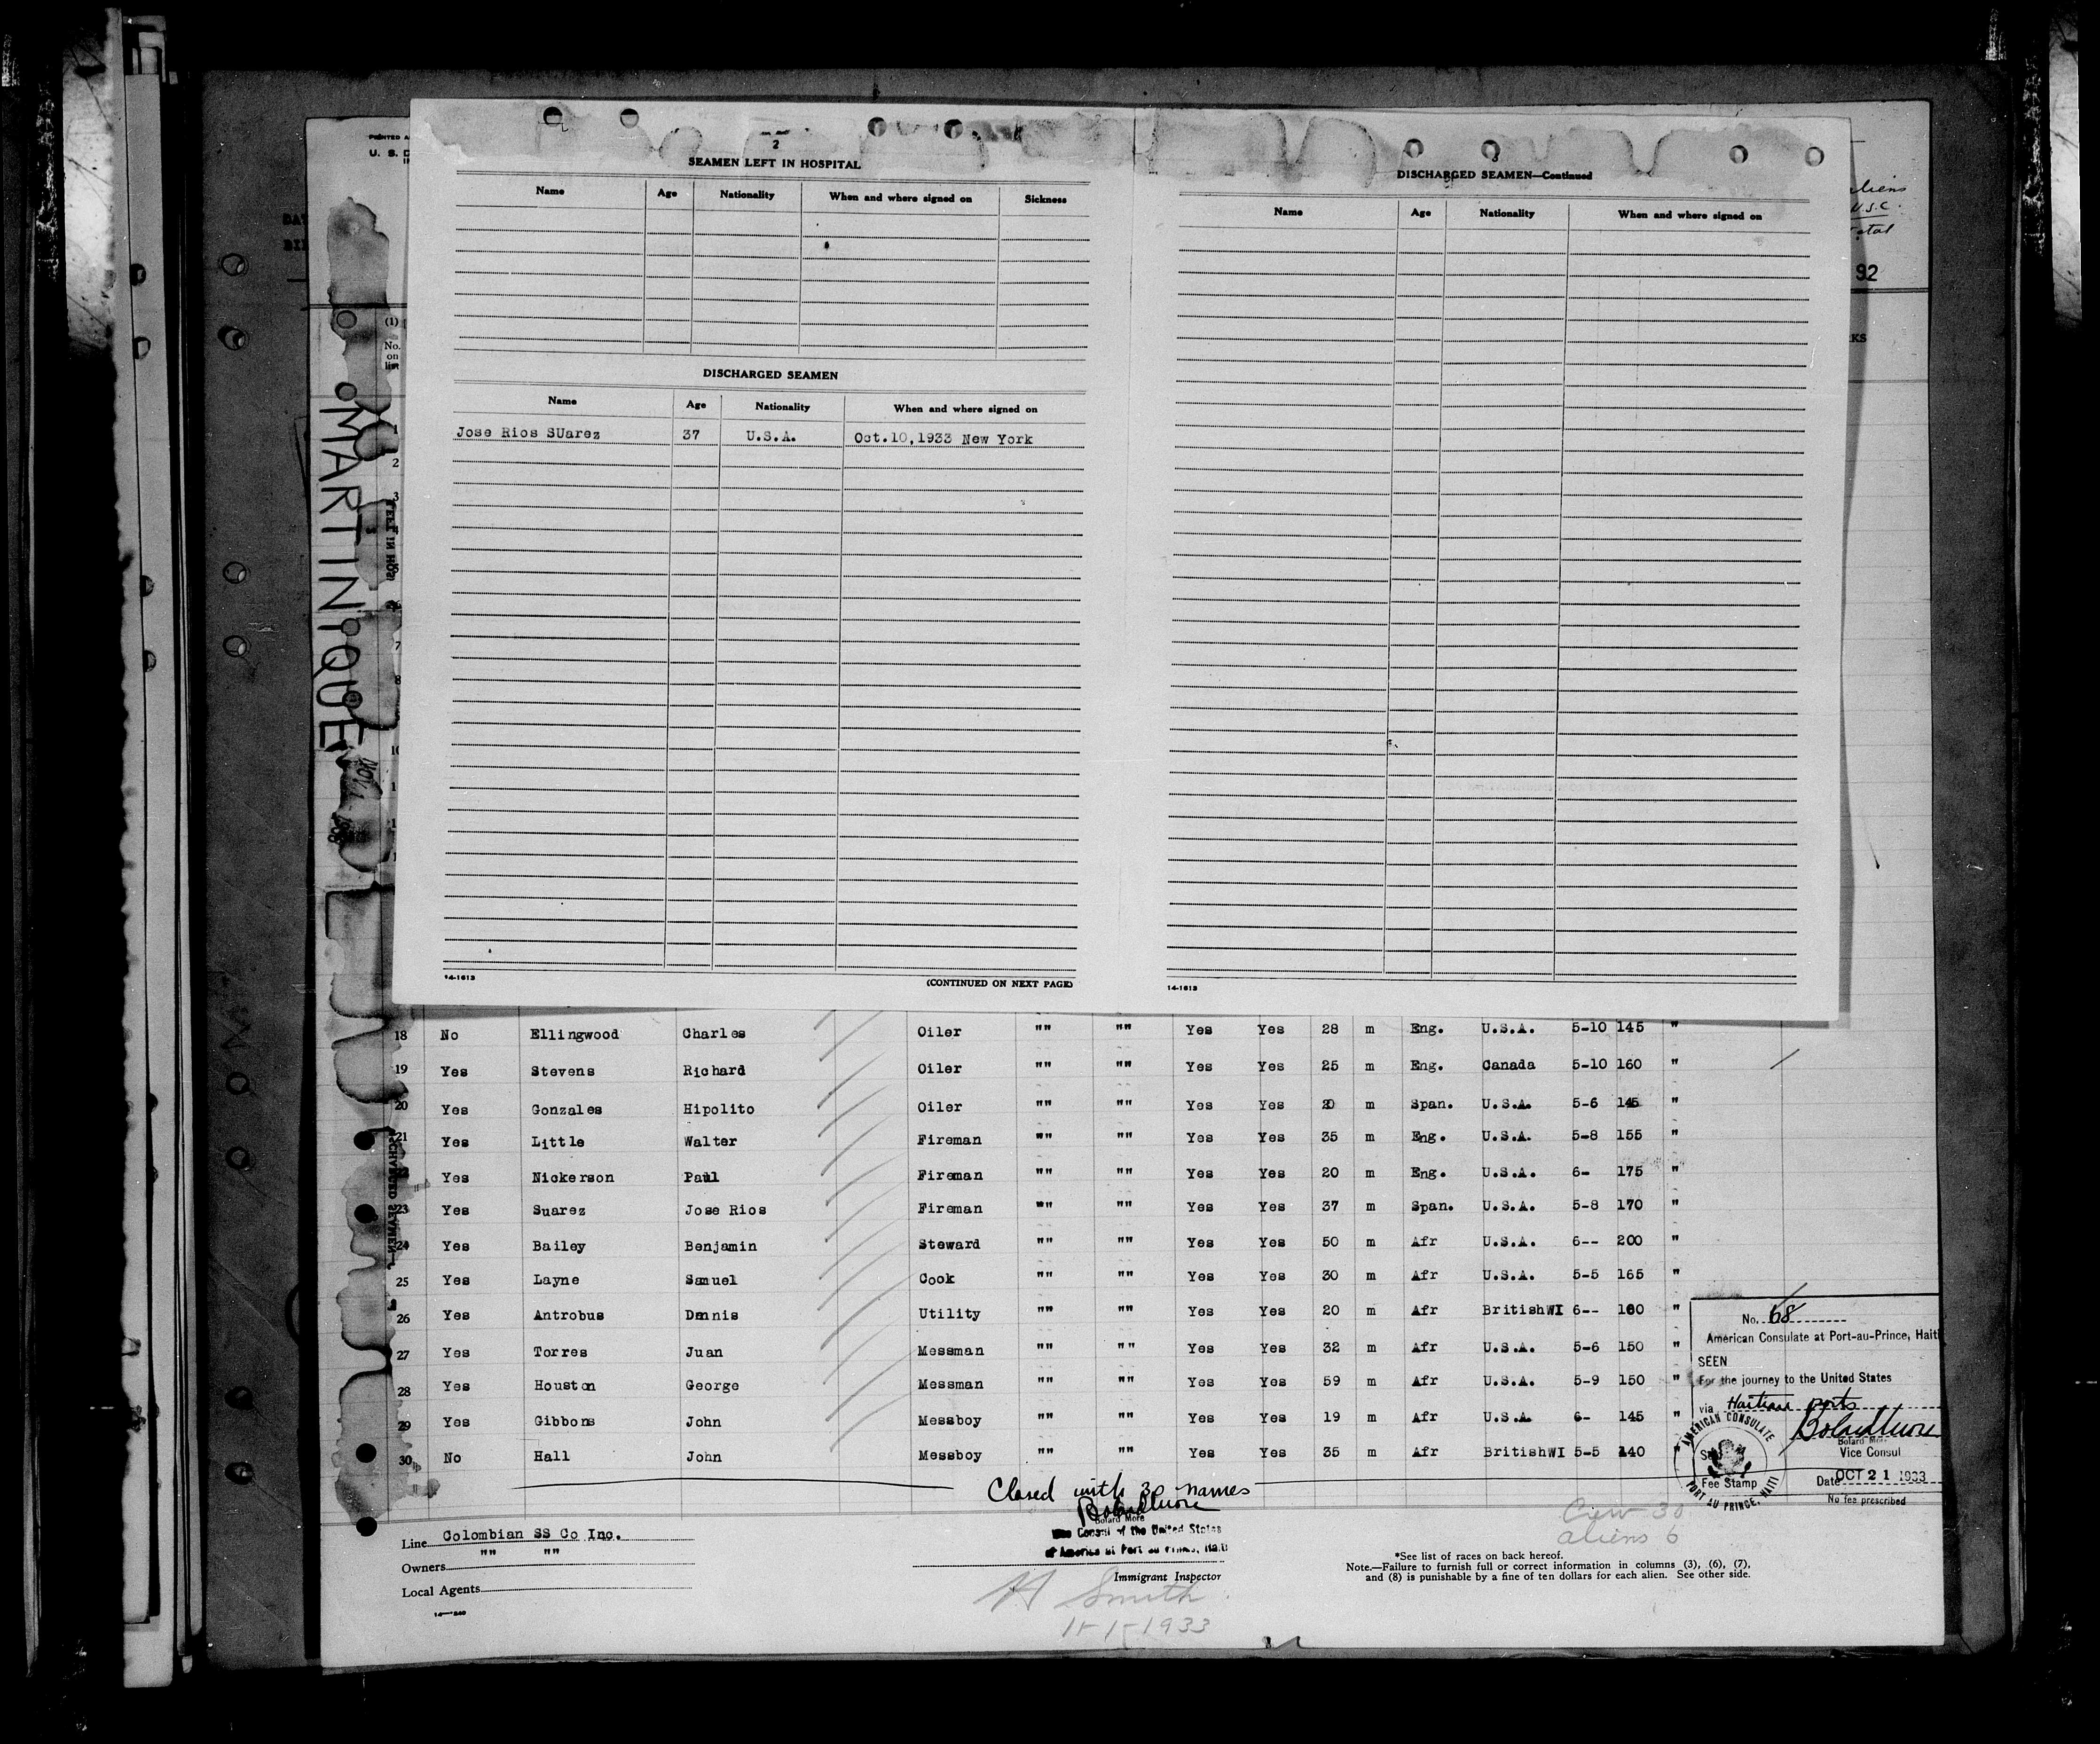 PRINTED
U. S. D
aliens
U.S.C.
total
92
KS
(1)
No.
on
list
MARTINIQUE
2
SEAMEN LEFT IN HOSPITAL
Name Age Nationality When and where signed on Sickness
DISCHARGED SEAMEN
Name Age Nationality When and where signed on
Jose Rios SUarez 37 U.S.A. Oct.10,1933 New York
14-1613
(CONTINUED ON NEXT PAGE)
3
DISCHARGED SEAMEN—Continued
Name Age Nationality When and where signed on
14-1613
1
2
3
7
8
10
18 No Ellingwood Charles Oiler "" "" Yes Yes 28 m Eng. U.S.A. 5-10 145 "
19 Yes Stevens Richard Oiler "" "" Yes Yes 25 m Eng. Canada 5-10 160 "
20 Yes Gonzales Hipolito Oiler "" "" Yes Yes 20 m Span. U.S.A. 5-6 145 "
21 Yes Little Walter Fireman "" "" Yes Yes 35 m Eng. U.S.A. 5-8 155 "
Yes Nickerson Paul Fireman "" "" Yes Yes 20 m Eng. U.S.A. 6- 175 "
23 Yes Suarez Jose Rios Fireman "" "" Yes Yes 37 m Span. U.S.A. 5-8 170 "
24 Yes Bailey Benjamin Steward "" "" Yes Yes 50 m Afr U.S.A. 6-- 200 "
25 Yes Layne Samuel Cook "" "" Yes Yes 30 m Afr U.S.A. 5-5 165 "
26 Yes Antrobus Dennis Utility "" "" Yes Yes 20 m Afr BritishWI 6-- 160 "
27 Yes Torres Juan Messman "" "" Yes Yes 32 m Afr U.S.A. 5-6 150 "
28 Yes Houston George Messman "" "" Yes Yes 59 m Afr U.S.A. 5-9 150 "
29 Yes Gibbons John Messboy "" "" Yes Yes 19 m Afr U.S.A. 6- 145 "
30 No Hall John Messboy "" "" Yes Yes 35 m Afr BritishWI 5-5 140 "
No. 68
American Consulate at Port-au-Prince, Haiti
SEEN
For the journey to the United States
via Haitian ports
Bolard More
Vice Consul
Date OCT 21 1933
No fee prescribed
AMERICAN CONSULATE
Fee Stamp
PORT AU PRINCE, HAITI
Closed with 30 names
Bolard More
Bolard More
Vice Consul of the United States
of America at Port au Prince, Haiti
Crew 30
aliens 6
Line Colombian SS Co Inc.
Owners "" ""
Local Agents
Immigrant Inspector
H Smith
11-1-1933
*See list of races on back hereof.
Note.—Failure to furnish full or correct information in columns (3), (6), (7),
and (8) is punishable by a fine of ten dollars for each alien. See other side.